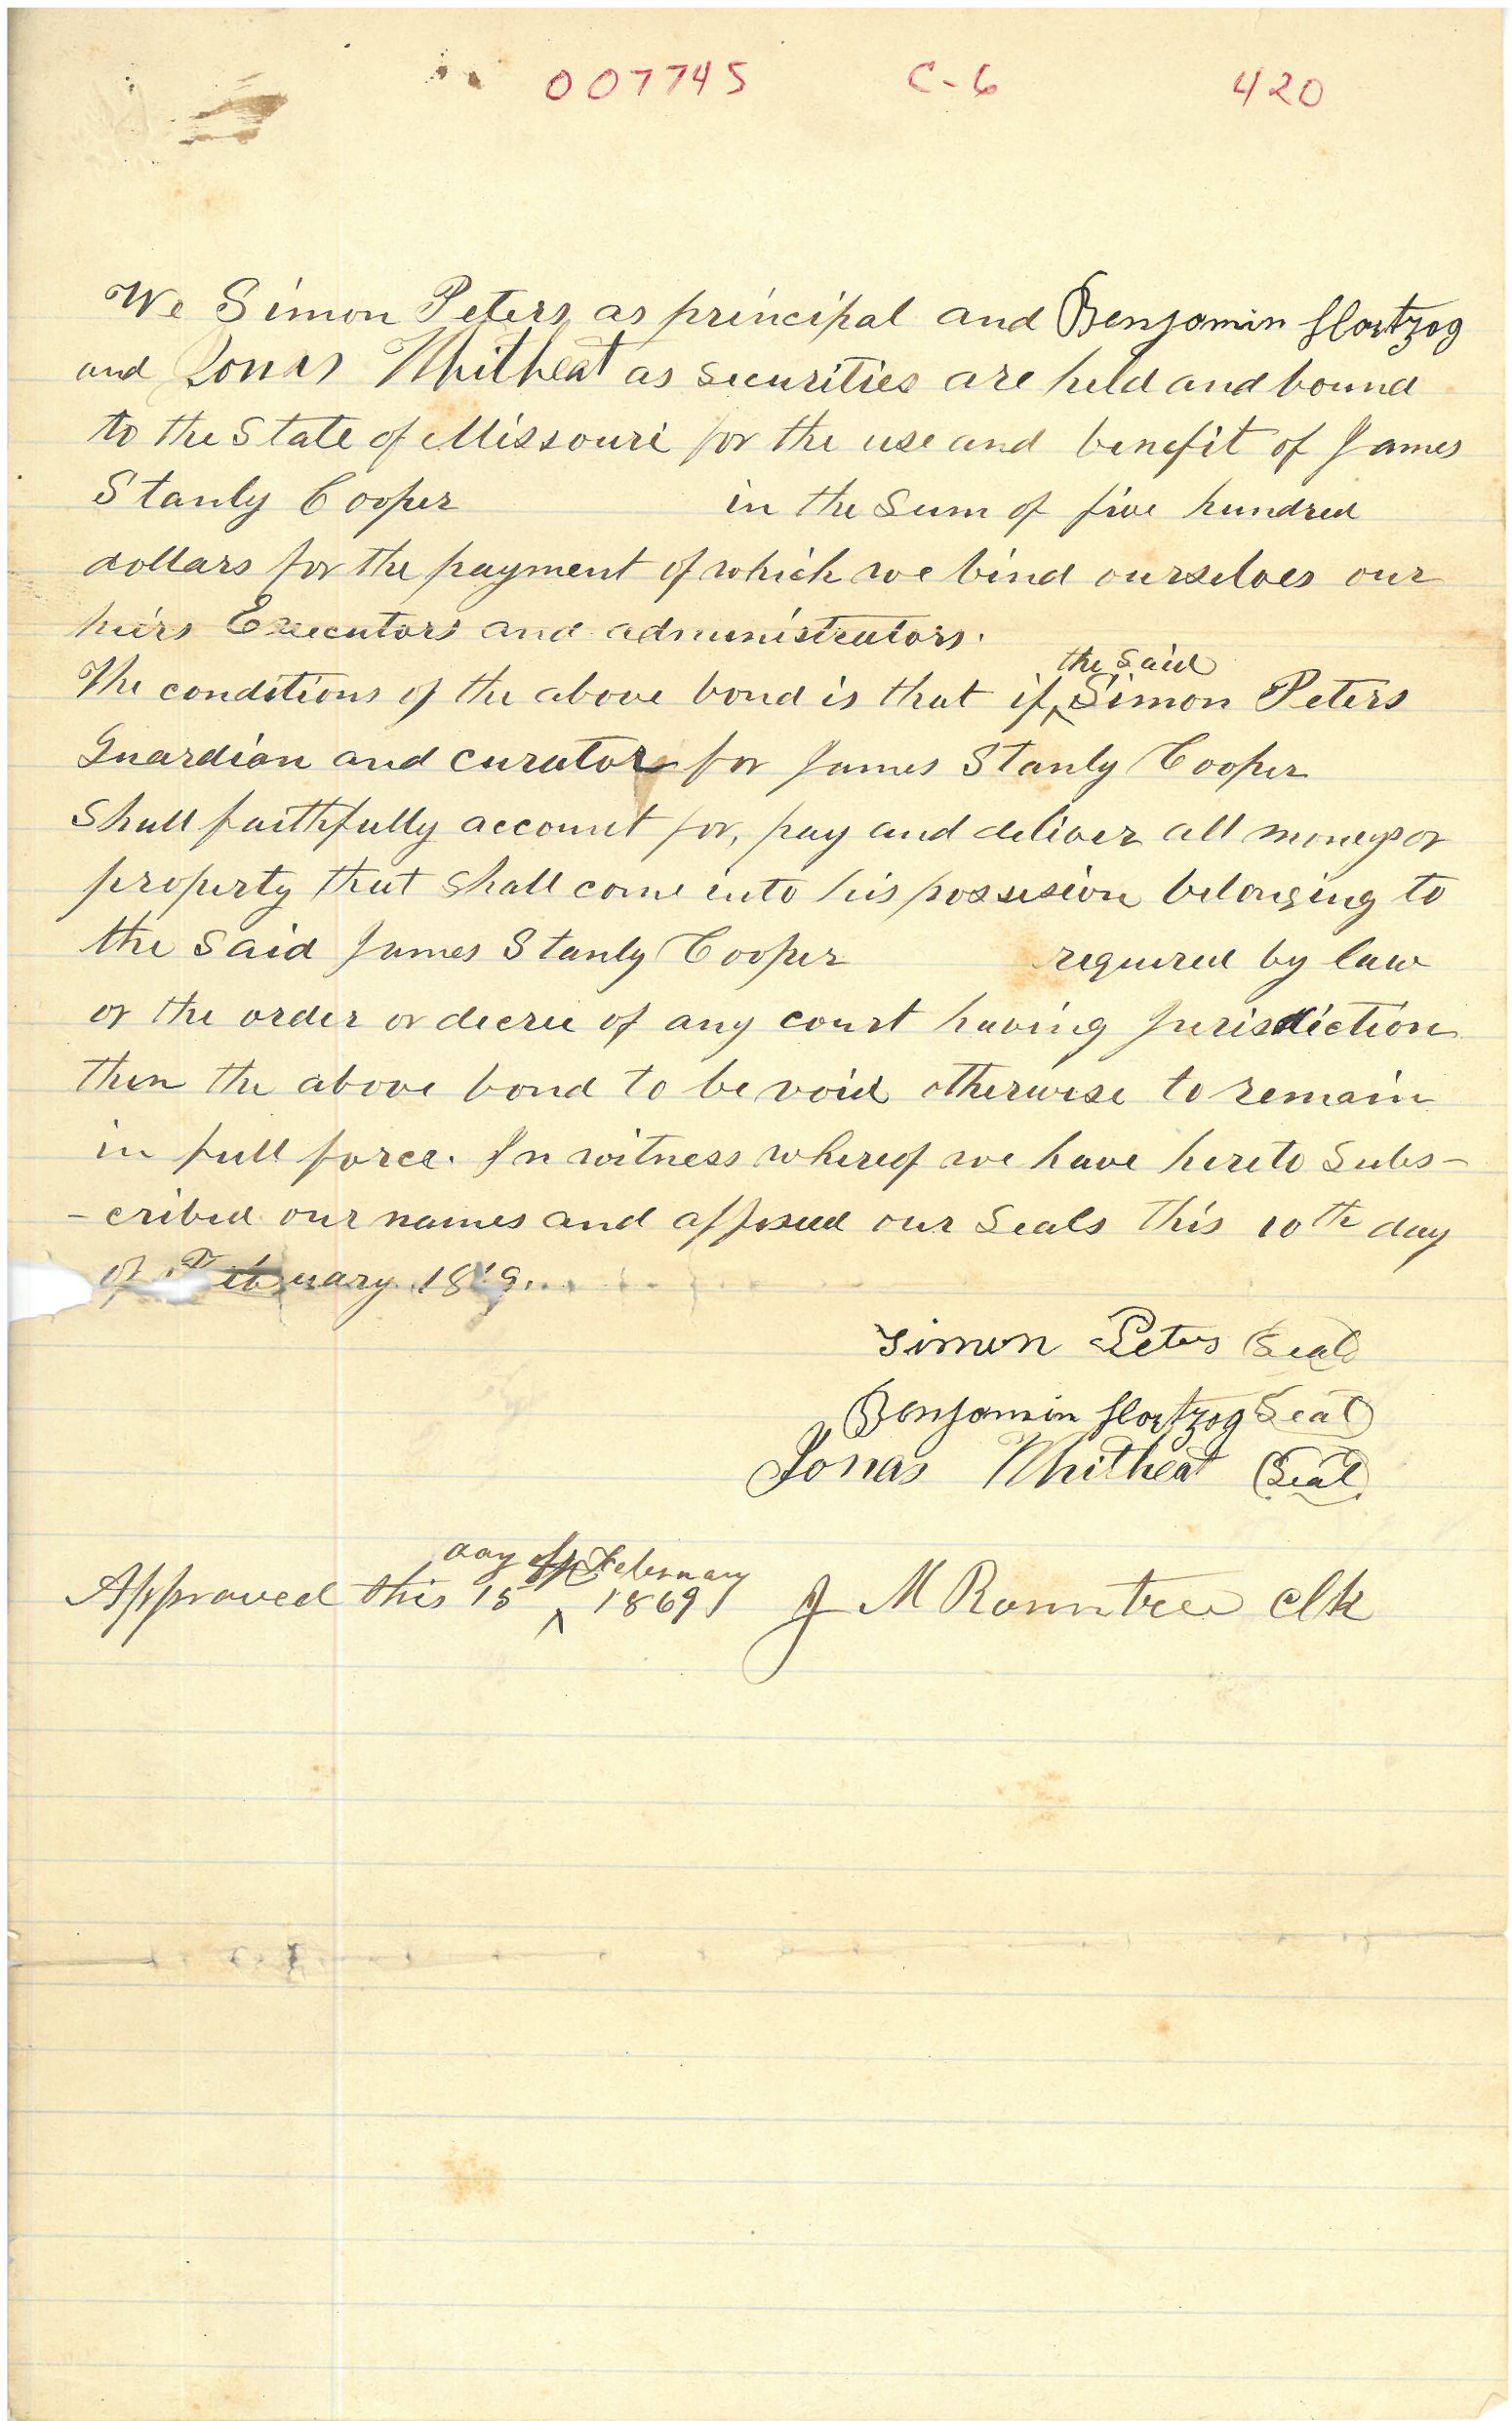 007745 C-6 420
We Simon Peters as principal and Benjamin Hortzog
and Jonas Whitheat as securities are held and bound
to the State of Missouri for the use and benefit of James
Stanly Cooper in the Sum of five hundred
dollars for the payment of which we bind ourselves our
heirs Executors and administrators.
the said
The conditions of the above bond is that if ^ Simon Peters
Guardian and curator for James Stanly Cooper
Shall faithfully account for, pay and deliver all moneys or
property that shall come into his possesion belonging to
the said James Stanly Cooper required by law
or the order or decree of any court having Jurisdiction
then the above bond to be void otherwise to remain
in full force. In witness whereof we have hereto Subs-
-cribed our names and affixed our Seals this 10th day
of February
Simon Peters Seal
Benjamin Hortzog Seal
Jonas Whitheat Seal
day of February
Approved this 15 ^ 1869 J M Rountree Clk